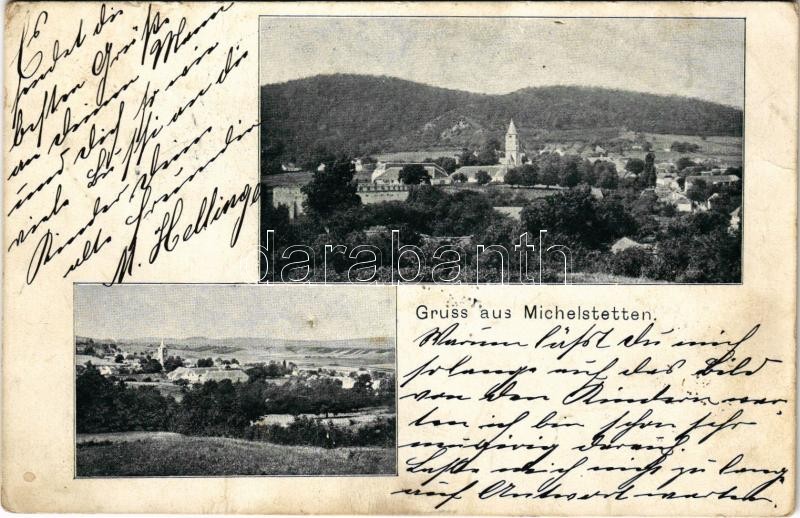 Es
sendet die
besten Grüße
an deinen Mann
und dich so wie
viele Bussi an die
Kinder deine
alte Freundin
M. Hellinger
darabanth
Gruss aus Michelstetten.
Warum läßt du mich
solange auf das Bild
von den Kindern war
ten ich bin schon sehr
neugirig darauf.
Laße mich nicht zu lang
auf Antwort warten.